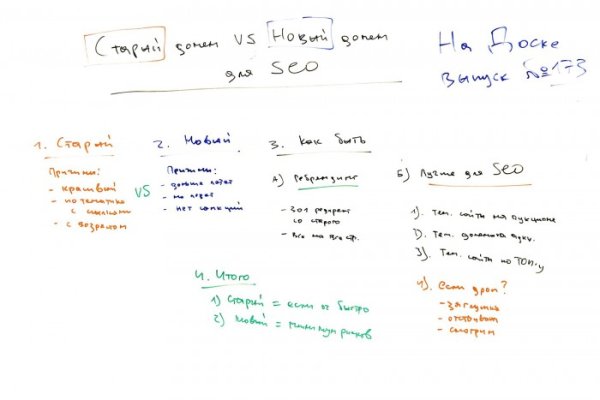 Старый домен VS Новый домен
для SEO
На Доске
Выпуск №173
1. Старый
Причины:
- красивый
- по тематике
с ссылками
- с возрастом
VS
2. Новый
Причины:
- дольше
- не
- нет санкций
3. Как быть
А) Ребрендинг
- 301 редирект
со старого
- все на все стр.
Б) Лучше для SEO
1). Тем. сайты на аукционе
2). Тем. домена аукц.
3). Тем. сайты по ТОП-у
4). Если дроп?
- заглушка
- отстаивам
- смотрим
4. Итого
1) Старый = если ог быстро
2) Новый = минимум рисков